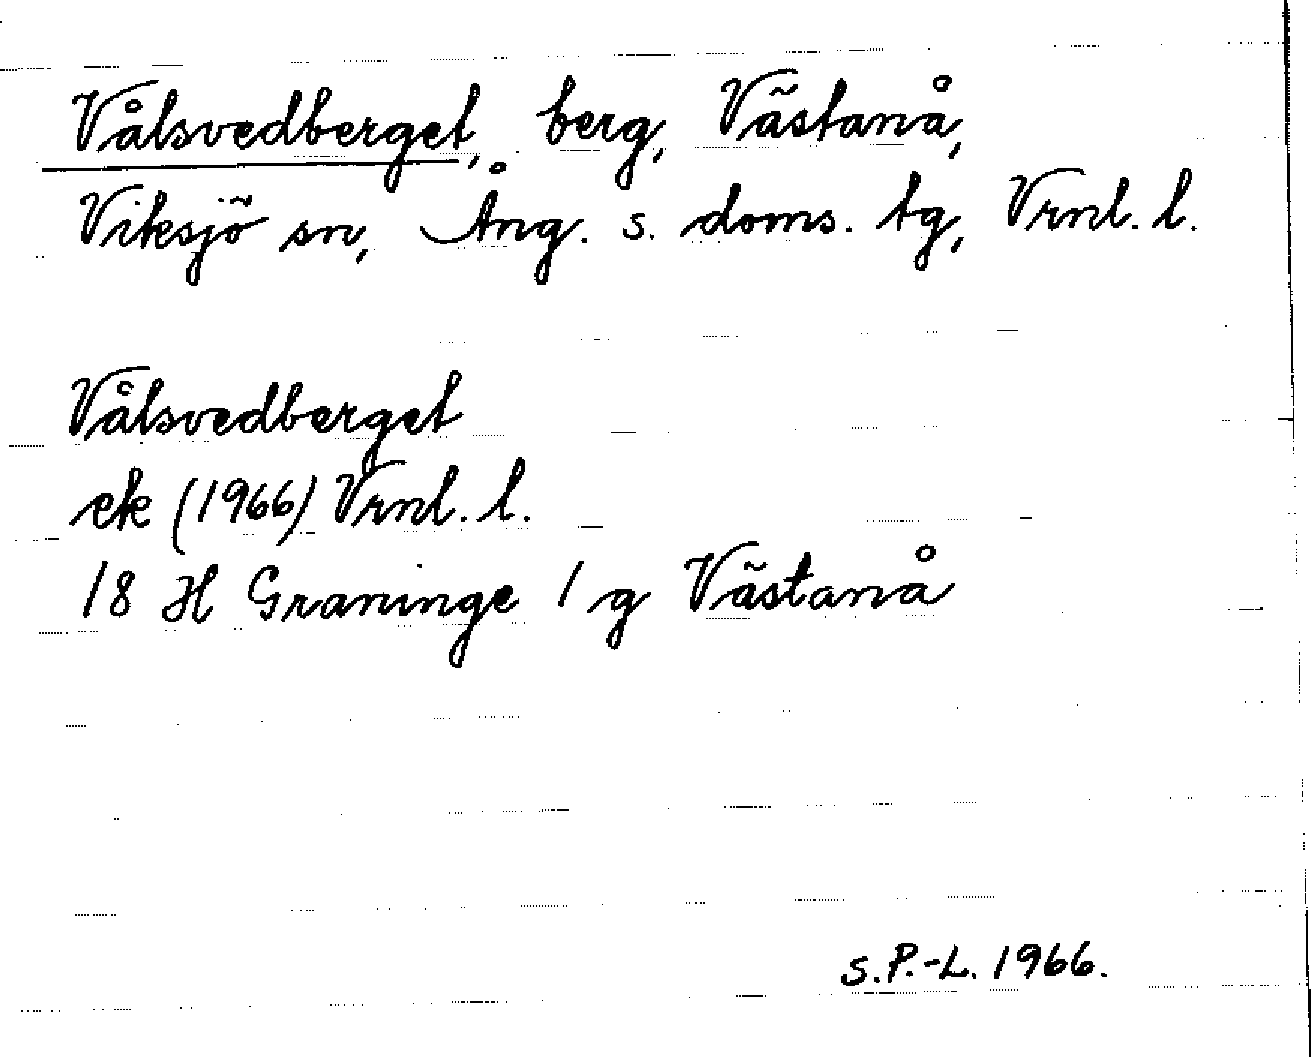 Vålsvedberget, berg, Västanå,
Viksjö sn, Ång. s. doms. tg, Vrnl. l.
Vålsvedberget
ek (1966) Vrnl. l.
18 H Graninge 1 g Västanå
S.P.-L. 1966.